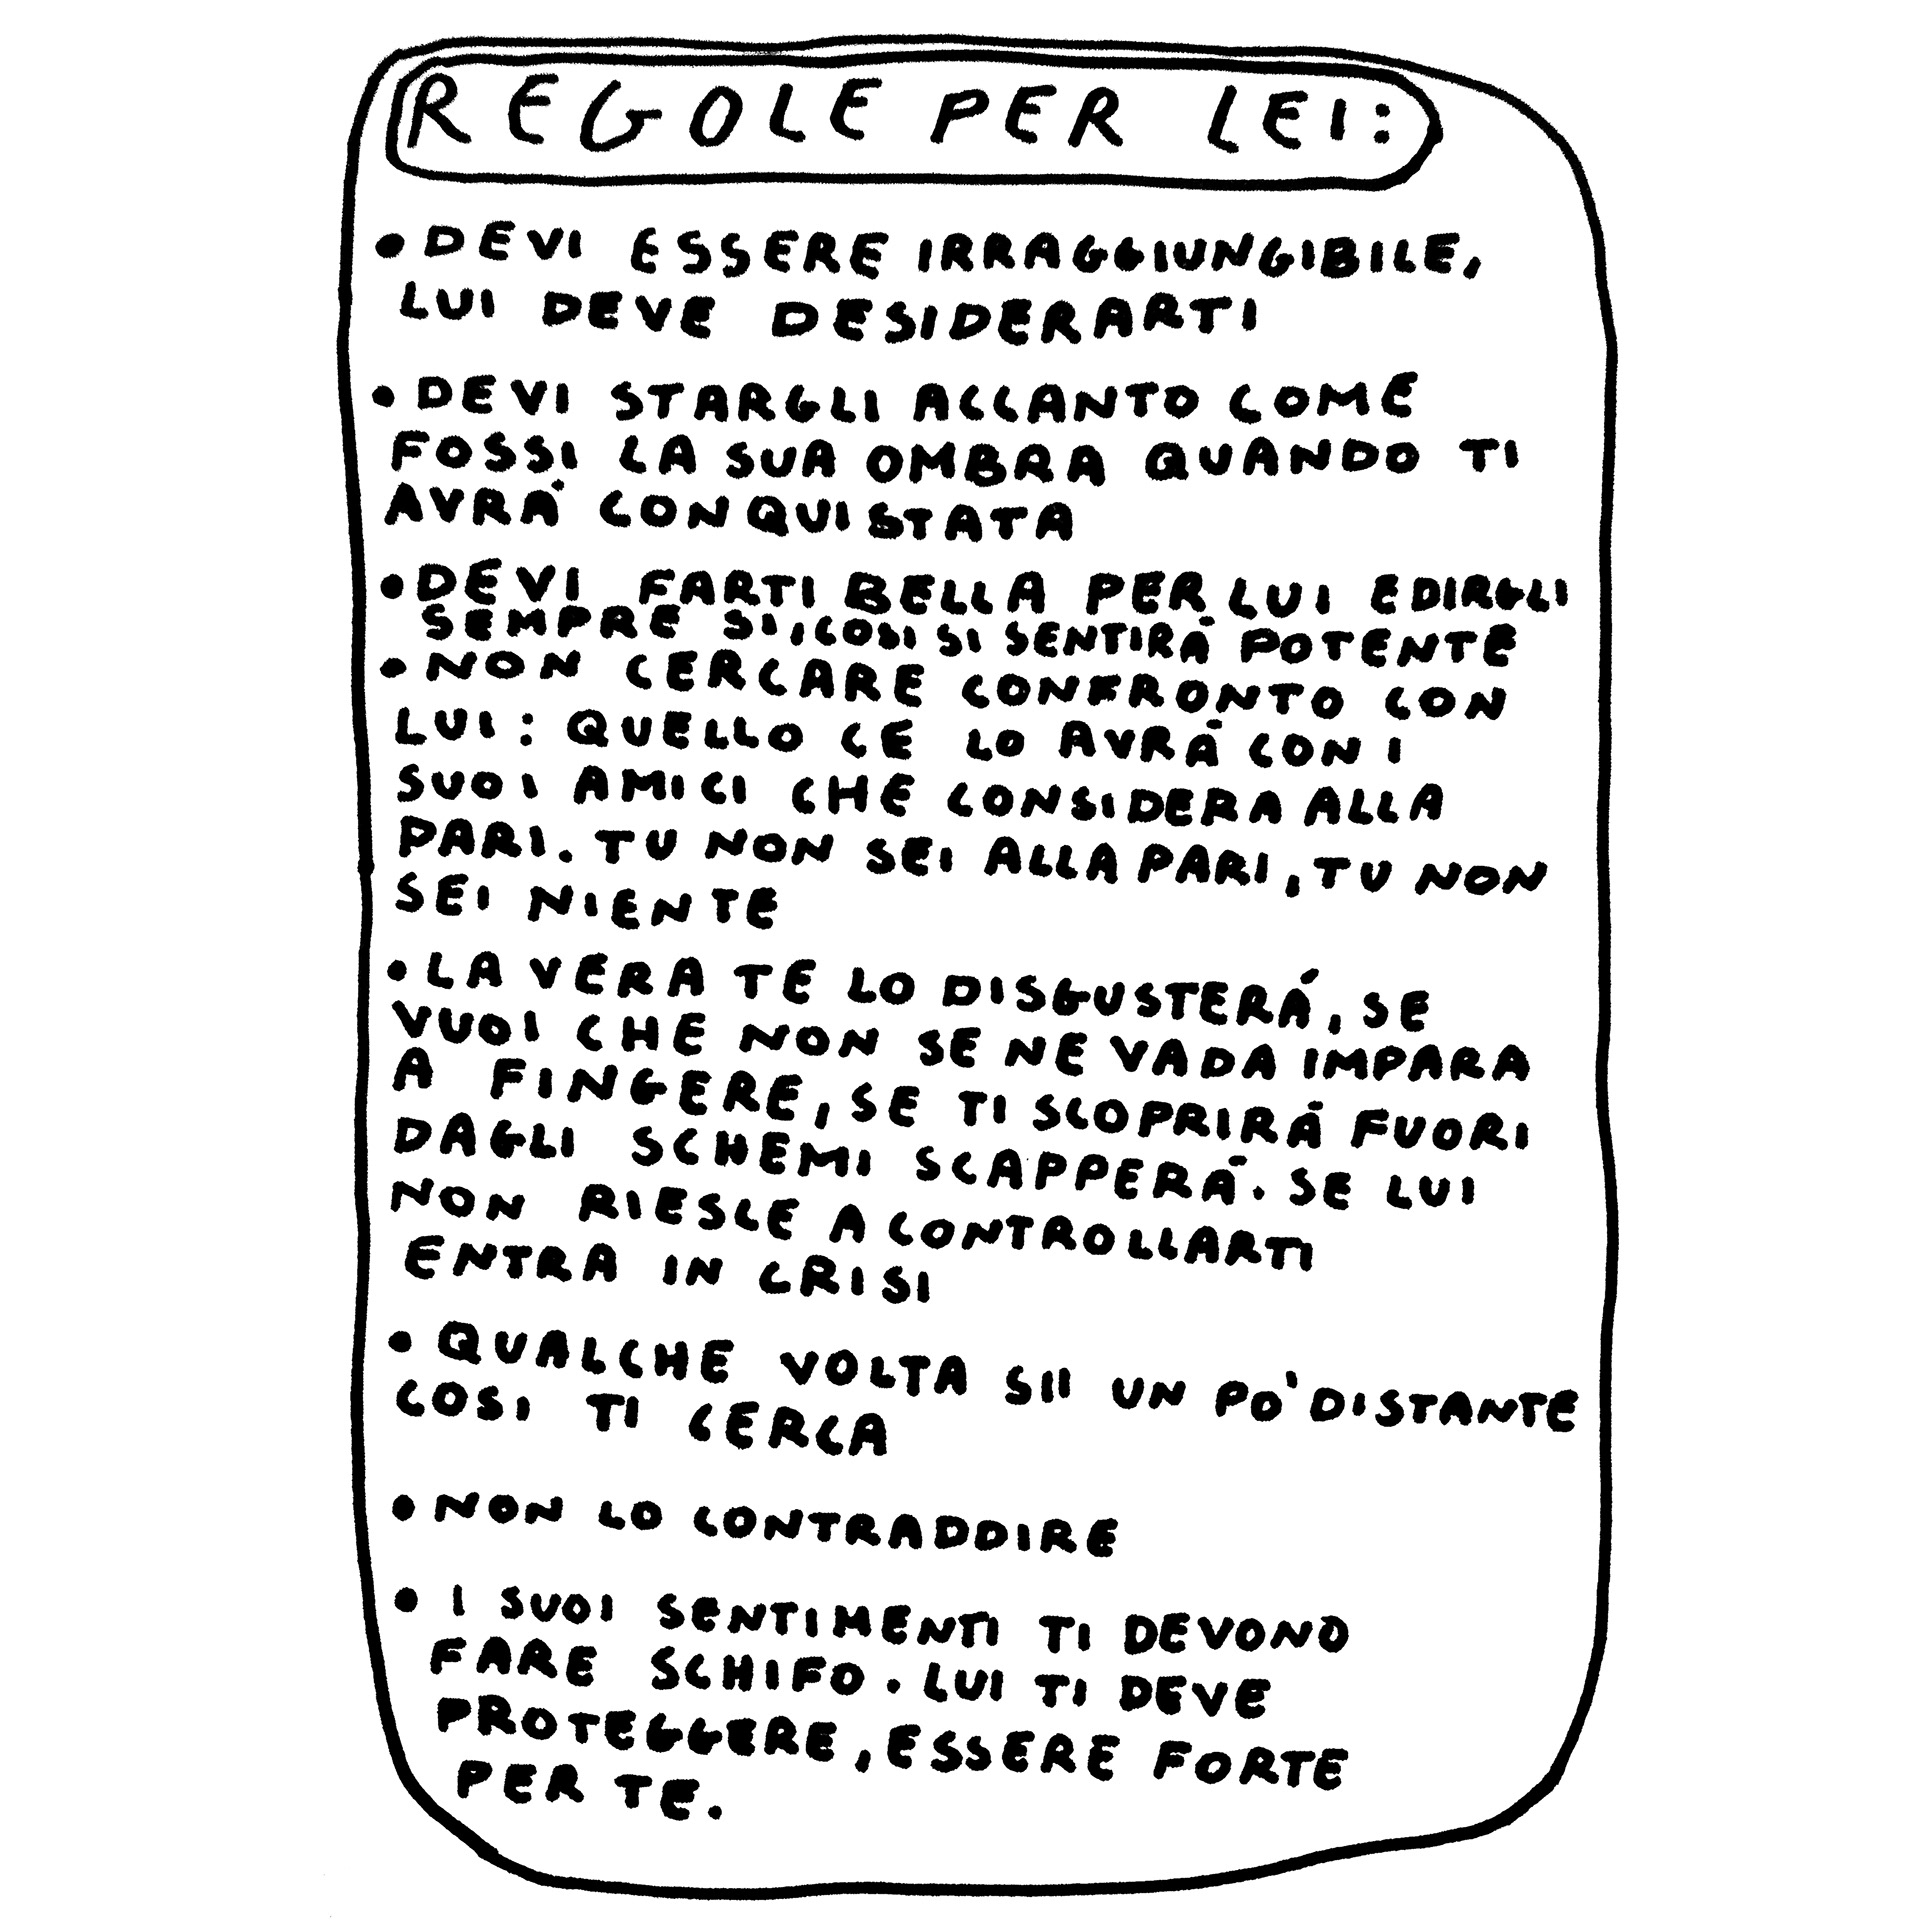 REGOLE PER LEI:
• DEVI ESSERE IRRAGGIUNGIBILE,
LUI DEVE DESIDERARTI
• DEVI STARGLI ACCANTO COME
FOSSI LA SUA OMBRA QUANDO TI
AVRÀ CONQUISTATA
• DEVI FARTI BELLA PER LUI E DIRGLI
SEMPRE SI, COSI SI SENTIRÀ POTENTE
• NON CERCARE CONFRONTO CON
LUI: QUELLO CE LO AVRÀ CON I
SUOI AMICI CHE CONSIDERA ALLA
PARI. TU NON SEI ALLA PARI, TU NON
SEI NIENTE
• LA VERA TE LO DISGUSTERÁ, SE
VUOI CHE NON SE NE VADA IMPARA
A FINGERE, SE TI SCOPRIRÁ FUORI
DAGLI SCHEMI SCAPPERÀ. SE LUI
NON RIESCE A CONTROLLARTI
ENTRA IN CRISI
• QUALCHE VOLTA SII UN PO' DISTANTE
COSI TI CERCA
• NON LO CONTRADDIRE
• I SUOI SENTIMENTI TI DEVONO
FARE SCHIFO. LUI TI DEVE
PROTEGGERE, ESSERE FORTE
PER TE.